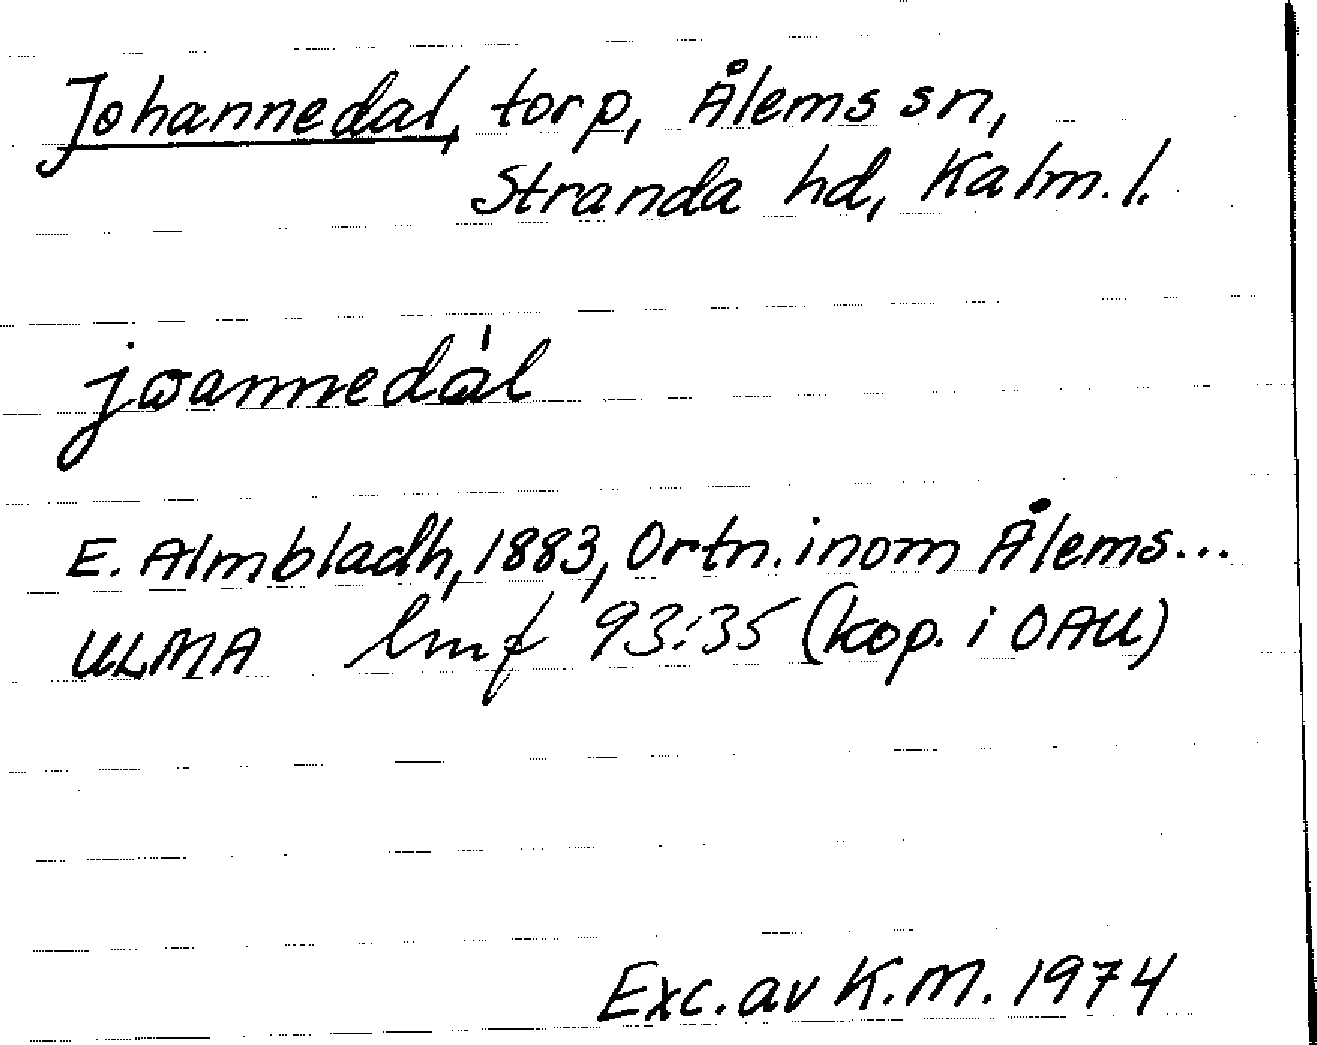 Johannedal, torp, Ålems sn,
Stranda hd, Kalm. l.
joannedál
E. Almbladh, 1883, Ortn. inom Ålems...
ULMA lmf 93:35 (kop. i OAU)
Exc. av K.M. 1974